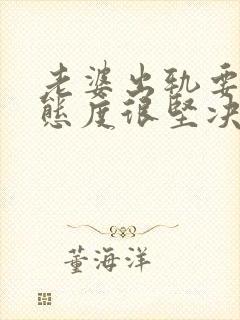 老婆出轨要
态度很坚决
董海洋